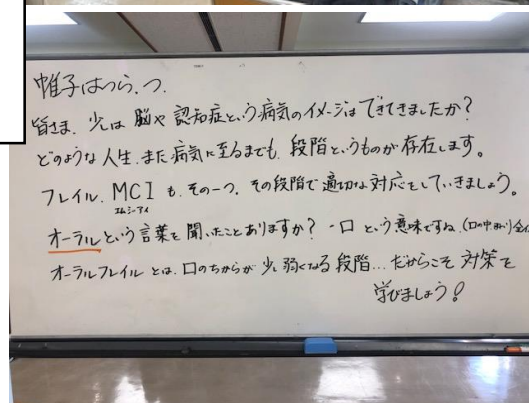 帷子はつらつ.
皆さま. 少しは 脳や 認知症という病気のイメージは できてきましたか?
どのような 人生. また 病気に至るまでも. 段階というものが 存在します。
フレイル. MCI も. その一つ. その段階で 適切な 対応をしていきましょう。
エムシーアイ
オーラルという 言葉を 聞いたことありますか? ・口 という意味ですね. (口の中
オーラルフレイル とは. 口のちからが 少し弱くなる 段階... だからこそ 対策を
学びましょう!